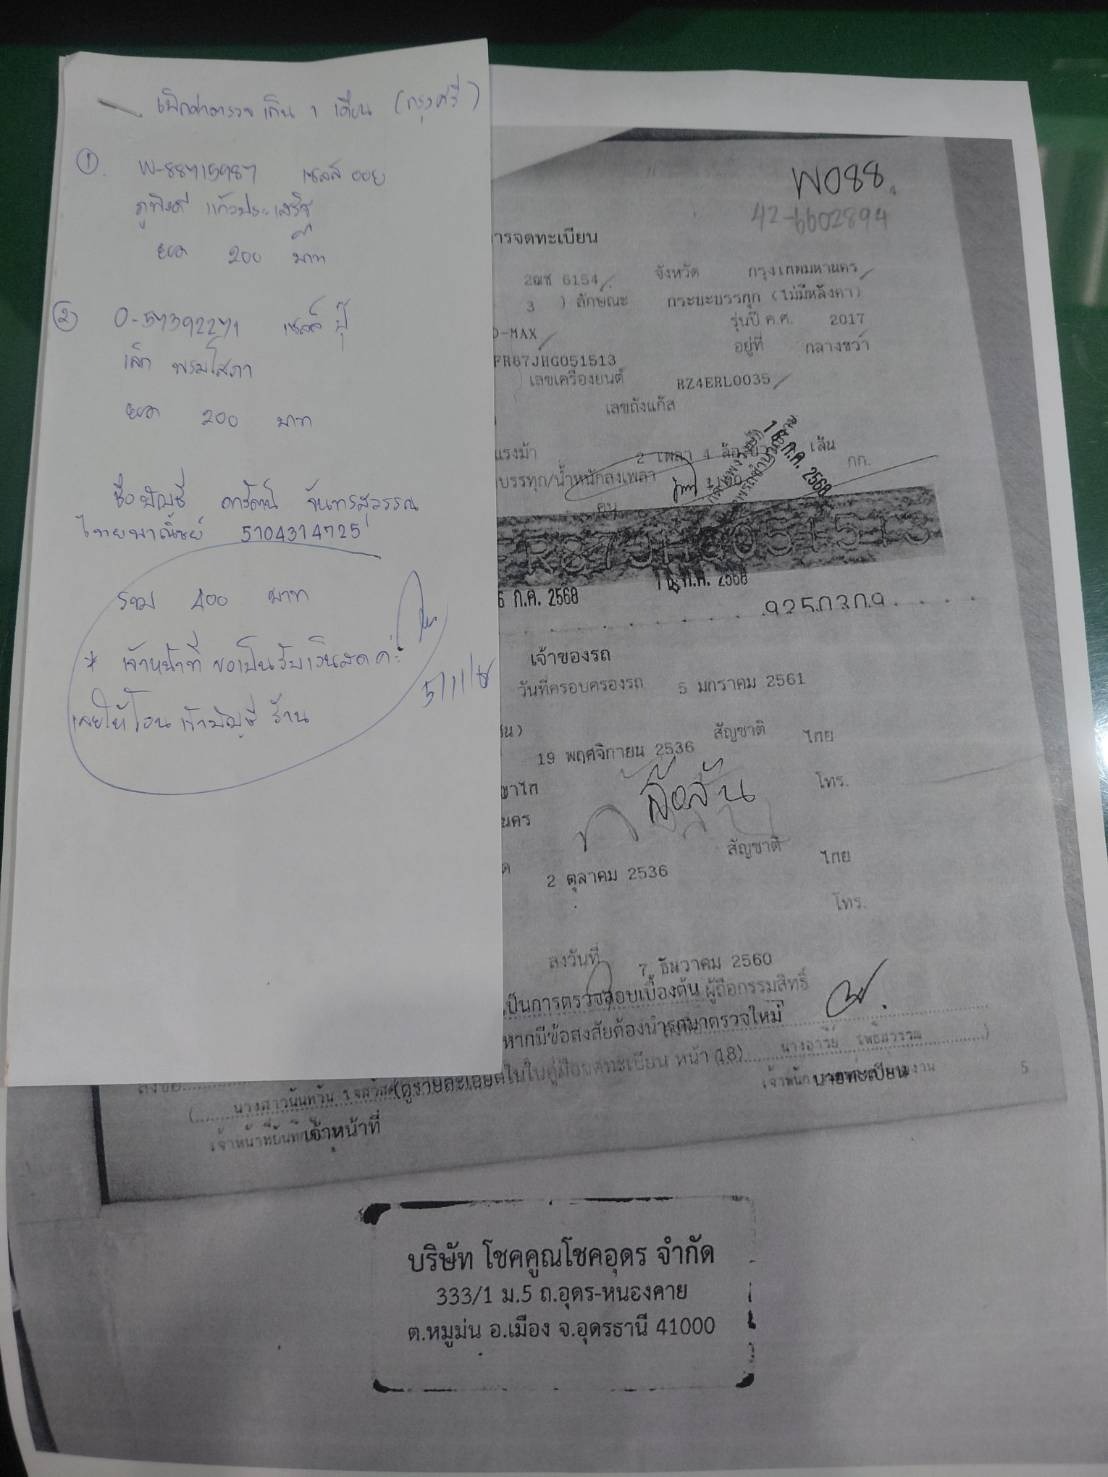 เบิกค่าตรวจ เกิน 1 เดือน (กรุงศรี)
① W-88715987 เซลล์ ออย
แก้วประเสริฐ
ยอด 200 บาท
② 0-57392271 เซลล์ ปุ๊
เล็ก พรมโสภา
ยอด 200 บาท
ชื่อบัญชี ดารัตน์ จันทรสุวรรณ
ไทยพาณิชย์ 5104314725
รวม 400 บาท
* เจ้าหน้าที่ ขอเป็นรับเงินสดค่ะ
เลยให้โอน เข้าบัญชี ร้าน
5/11/68
W088
42-6602894
การจดทะเบียน
2ฒช 6154 จังหวัด กรุงเทพมหานคร
3 ) ลักษณะ กระบะบรรทุก (ไม่มีหลังคา)
D-MAX รุ่นปี ค.ศ. 2017
FR87JHG051513 อยู่ที่ กลางขวา
เลขเครื่องยนต์ RZ4ERL0035
เลขถังแก๊ส
แรงม้า 2 เพลา 4 ล้อ เส้น
บรรทุก/น้ำหนักลงเพลา กก.
คน
16 ก.ค. 2568
R87JHG051513
6 ก.ค. 2568 16 ก.ค. 2568
เจ้าของรถ
วันที่ครอบครองรถ 5 มกราคม 2561
19 พฤศจิกายน 2536 สัญชาติ ไทย
โทร.
นคร
2 ตุลาคม 2536 สัญชาติ ไทย
โทร.
ลงวันที่ 7 ธันวาคม 2560
เป็นการตรวจสอบเบื้องต้น ผู้ถือกรรมสิทธิ์
หากมีข้อสงสัยต้องนำรถมาตรวจใหม่
(ดูรายละเอียดในใบคู่มือจดทะเบียน หน้า (18)
นางอารีย์ โพธิสุวรรณ
นายทะเบียน
5
เจ้าหน้าที่
บริษัท โชคคูณโชคอุดร จำกัด
333/1 ม.5 ถ.อุดร-หนองคาย
ต.หมูม่น อ.เมือง จ.อุดรธานี 41000